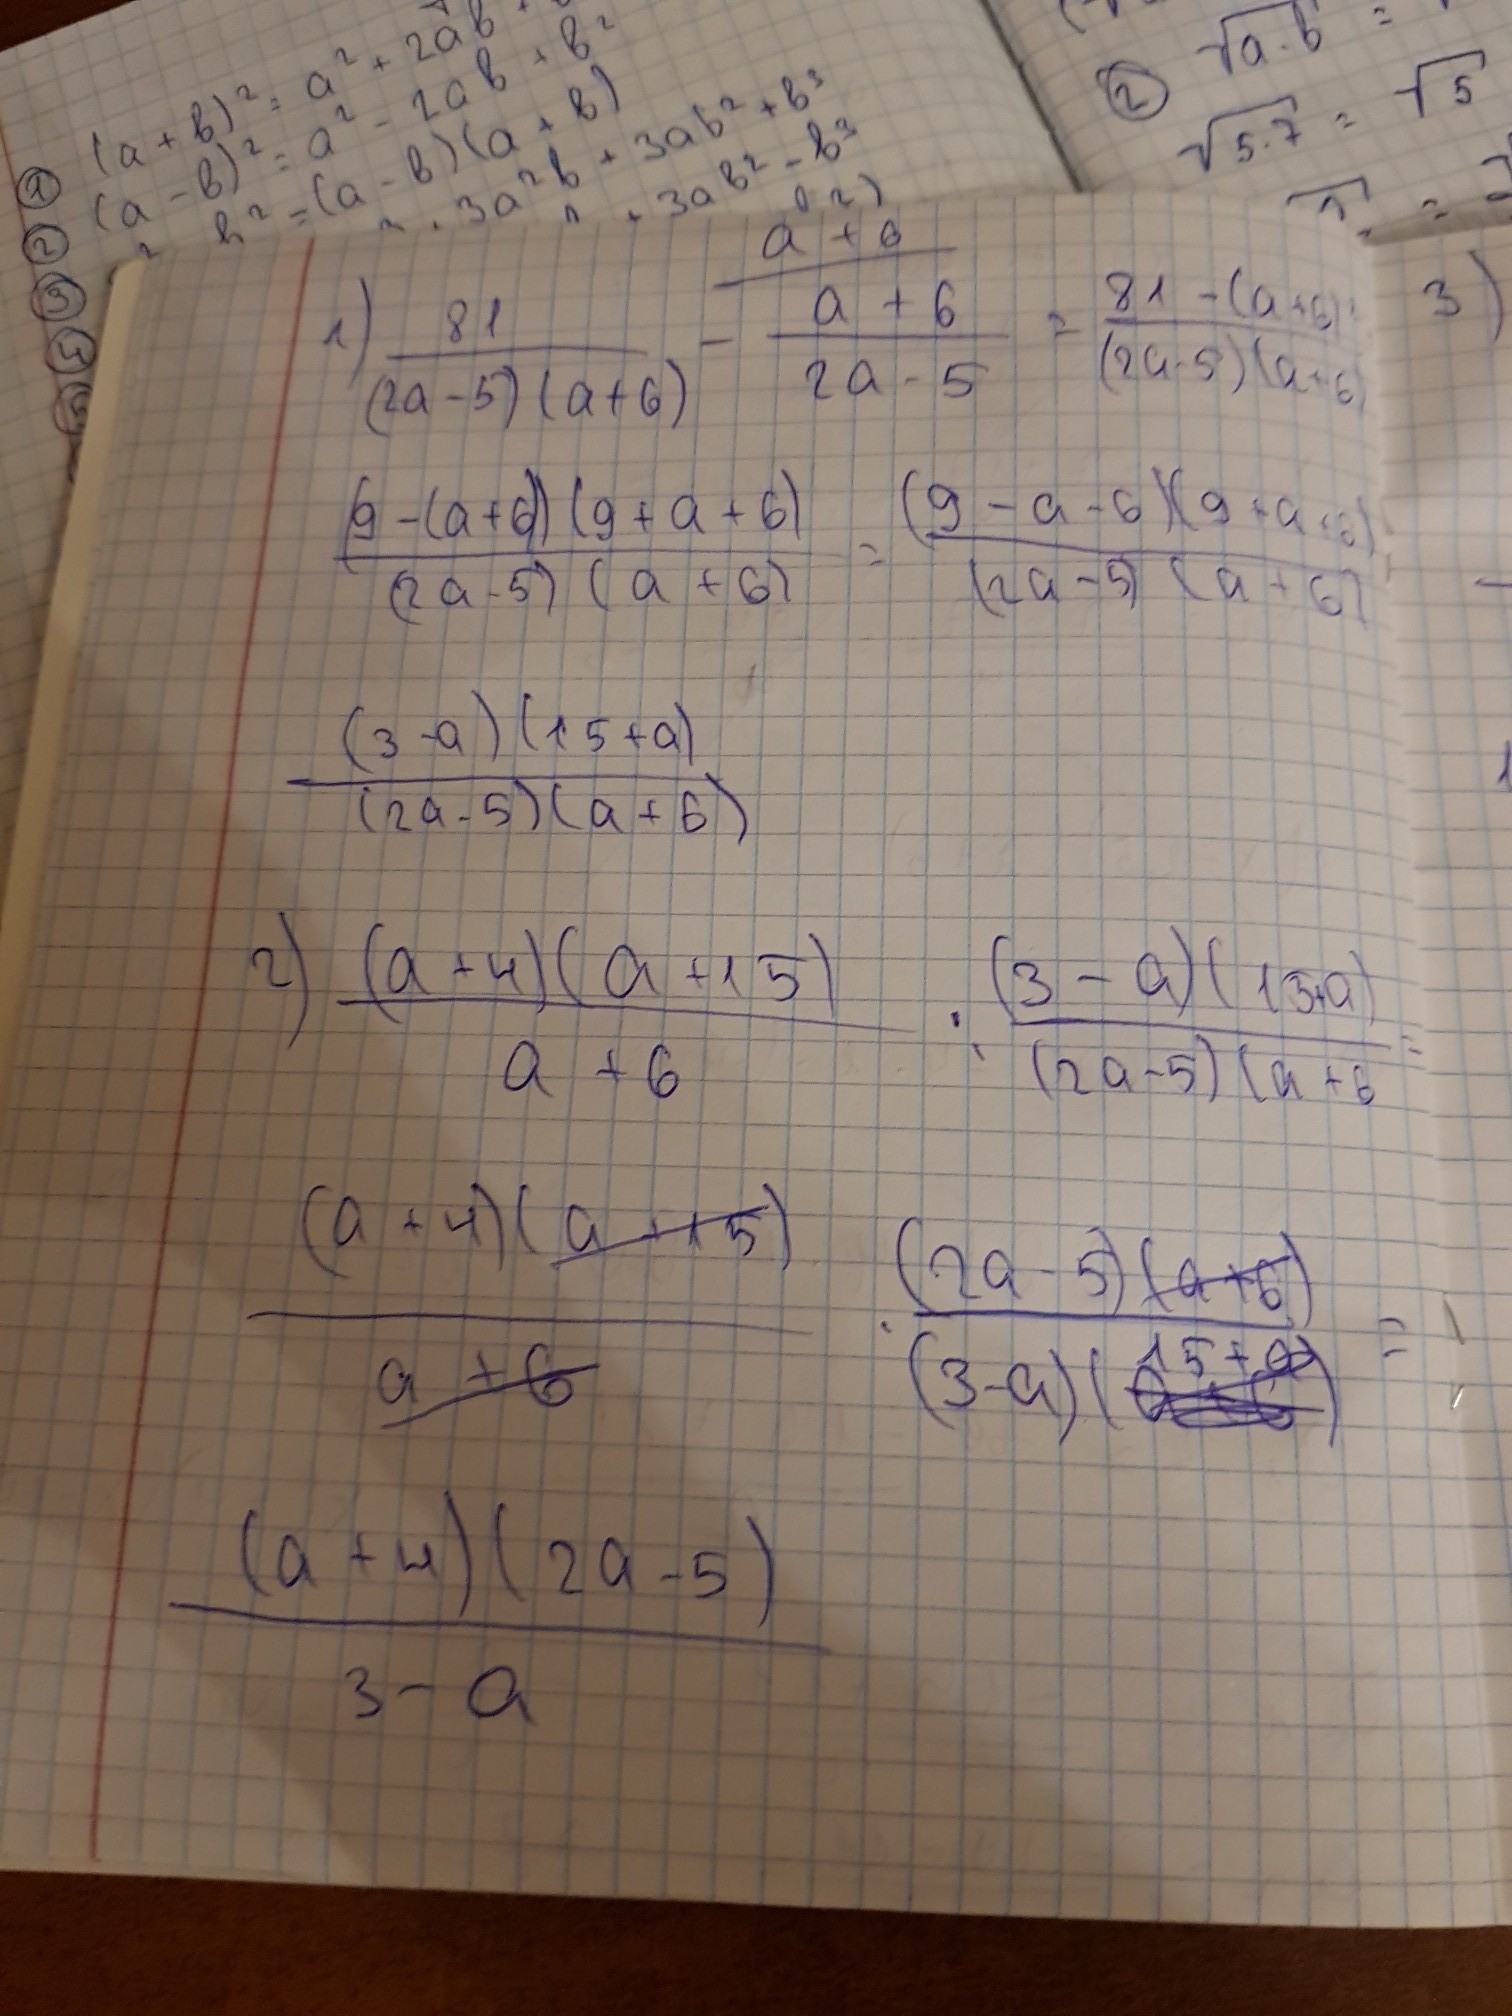 ① (a + b)² = a² + 2ab +
② (a - b)² = a² - 2ab + b²
③ b² = (a - b)(a + b)
④ 3a²b + 3ab² + b³
⑤ + 3ab² - b³
② √a·b =
√5·7 = √5
a + 6
1) 81/((2a-5)(a+6)) - (a+6)/(2a-5) = (81-(a+6)/((2a-5)(a+6)
3)
(9-(a+6))(9+a+6)/((2a-5)(a+6)) = (9-a-6)(9+a+6)/((2a-5)(a+6))
(3-a)(15+a)/((2a-5)(a+6))
2) (a+4)(a+15)/(a+6) : (3-a)(15+a)/((2a-5)(a+6 =
(a+4)(a+15)/(a+6) · (2a-5)(a+6)/((3-a)(15+a)) =
(a+4)(2a-5)/(3-a)